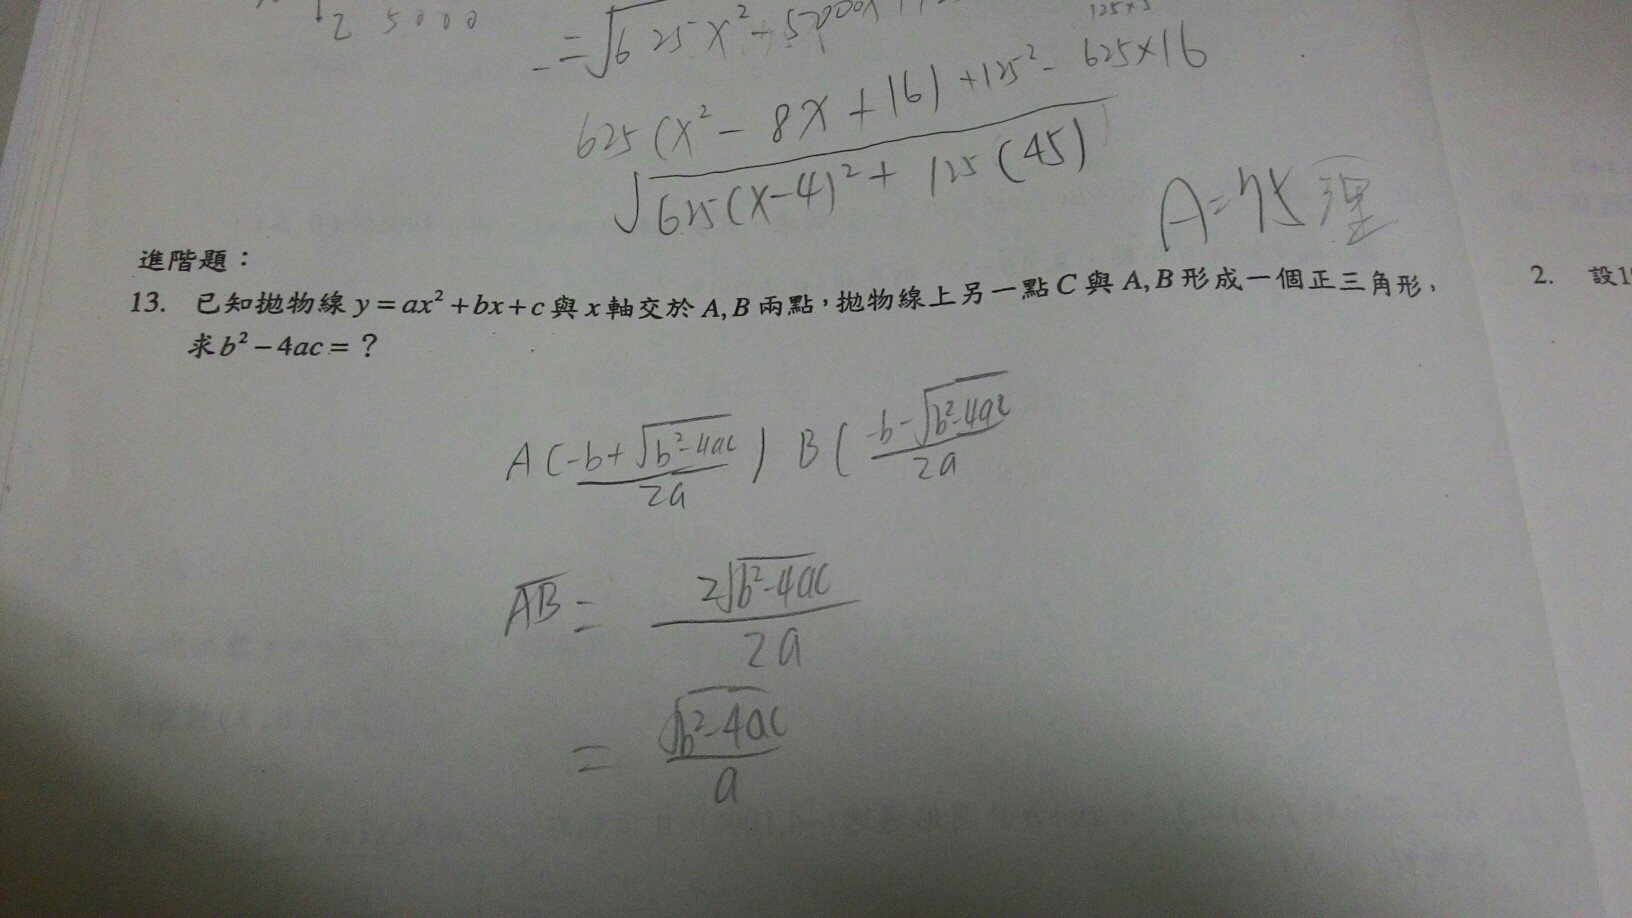 25000
625(x²-8x+16)+125²-625×16
√625(x-4)²+125(45)
進階題：
13. 已知拋物線 y=ax²+bx+c 與 x 軸交於 A,B 兩點，拋物線上另一點 C 與 A,B 形成一個正三角形，
求 b²-4ac=？
2. 設
A(-b+√b²-4ac/2a) B(-b-√b²-4ac/2a
AB=2√b²-4ac/2a
=√b²-4ac/a